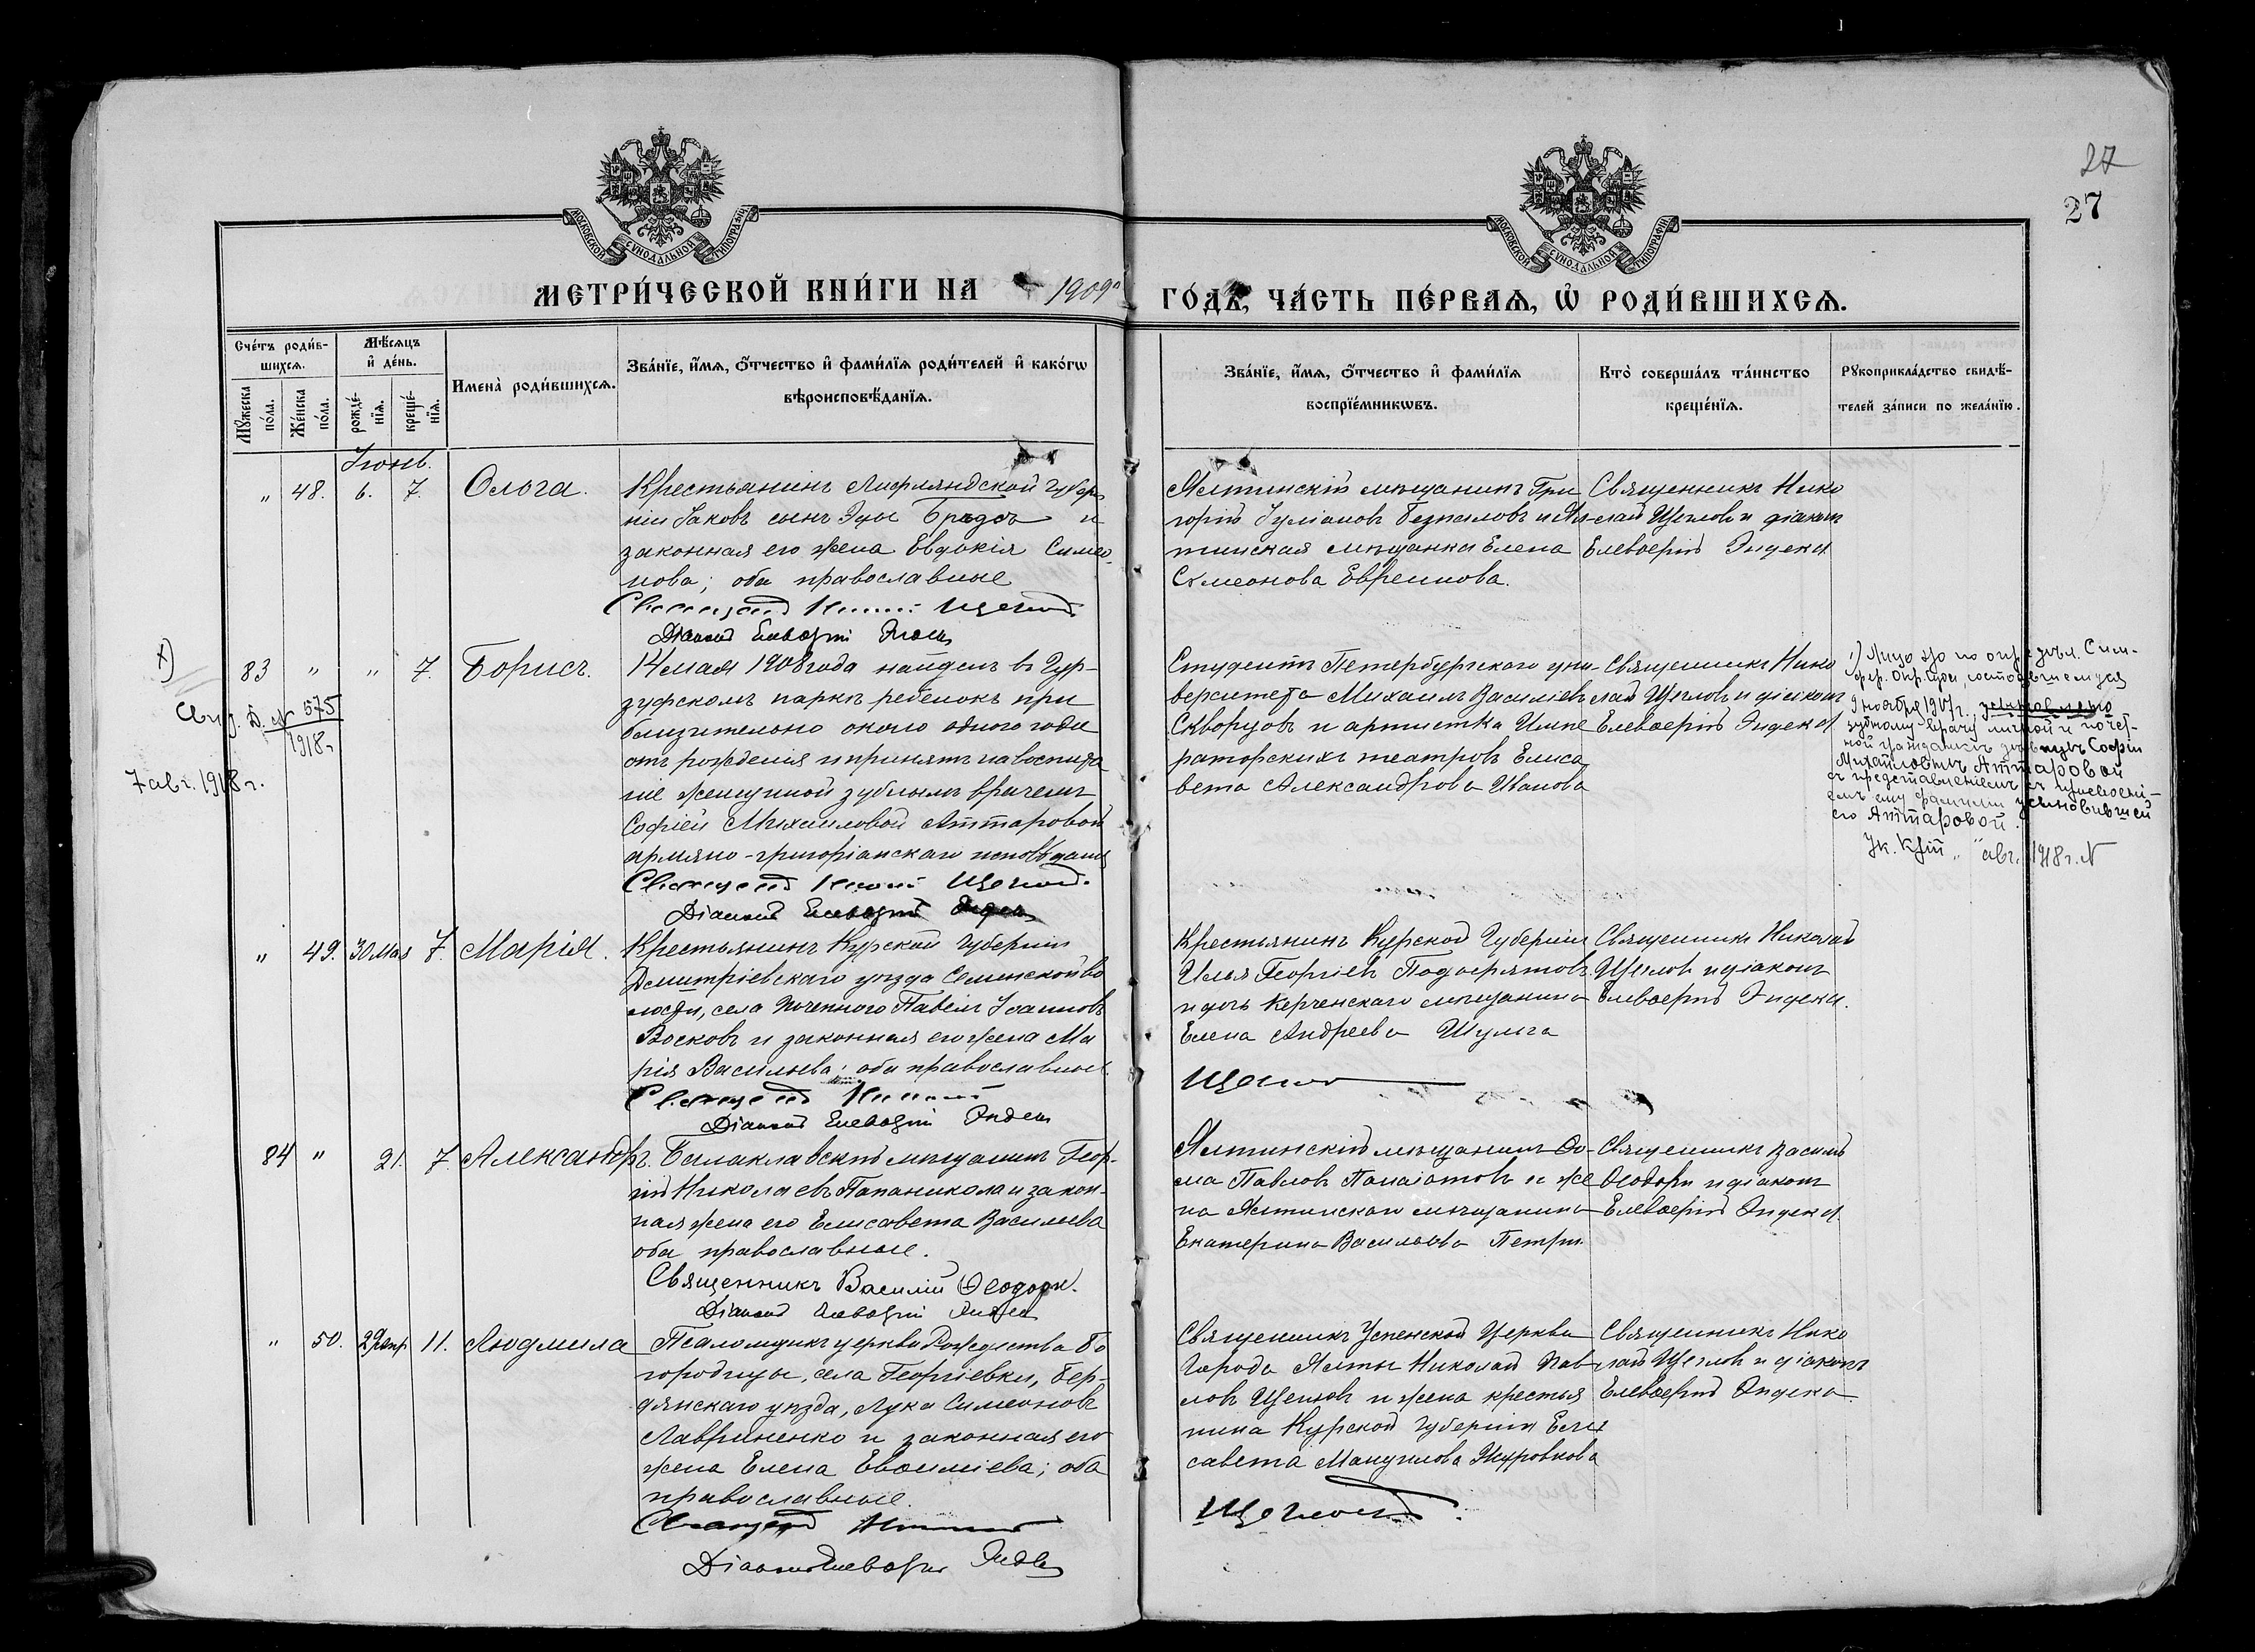 27
27
МОСКОВСКОЙ СѴНОДАЛЬНОЙ ТИПОГРАФІИ
МОСКОВСКОЙ СѴНОДАЛЬНОЙ ТИПОГРАФІИ
МЕТРИ́ЧЕСКОЙ КНИ́ГИ НА 1909й ГО́ДЪ, ЧА́СТЬ ПЕ́РВАѦ, Ѡ҆ РОДИ́ВШИХСѦ.
Сче́тъ роди́вшихсѧ.
Мꙋ́жеска по́ла.
Же́нска по́ла.
Мѣ́сѧцъ и҆ де́нь.
рожде́нїѧ.
креще́нїѧ.
Имена̀ роди́вшихсѧ.
Зва́нїе, и҆́мѧ, ѻ҆́тчество и҆ фами́лїѧ роди́телей и҆ како́гѡ
вѣроисповѣ́данїѧ.
Зва́нїе, и҆́мѧ, ѻ҆́тчество и҆ фами́лїѧ
воспрїе́мникѡвъ.
Кто̀ соверша́лъ та́инство
креще́нїѧ.
Рꙋкоприкла́дство свидѣ́-
телей за́писи по жела́нїю.
Іюнь.
" 48. 6. 7. Ольга.
Крестьянинъ Лифляндской губер-
ніи Іаковъ сынъ Эды Бредъ и
законная его жена Евдокія Симео-
нова; оба православные
Священникъ Николай Щегловъ
Діаконъ Елевѳерій Эндека
Ялтинскій мѣщанинъ Гри
горій Іуліановъ и Ял-
тинская мѣщанка Елена
Симеонова Евреинова.
Священникъ Нико
лай Щегловъ и діаконъ
Елевѳерій Эндека
х)
83 " " 7. Борисъ.
Свид. д. № 575
1918 г.
7 авг. 1918 г.
14 мая 1908 года найденъ въ Гур-
зуфскомъ паркѣ ребенокъ при
близительно около одного года
отъ рожденія и принятъ на воспита
ніе женщиной зубнымъ врачемъ
Софіей Михаиловой Аттаровой
армяно-григоріанскаго исповѣданія
Священникъ Николай Щегловъ.
Діаконъ Елевѳерій Эндека
Студентъ Петербургскаго уни-
верситета Михаилъ Васильевъ
Скворцовъ и артистка Импе
раторскихъ театровъ Елиса
вета Александрова Иванова
Священникъ Нико
лай Щегловъ и діаконъ
Елевѳерій Эндека
Лицо это по опредѣл. Сим-
фер. Окр. Суда, состоявшемуся
9 ноября 1917 г. усыновлено
зубному врачу личной и почет-
ной гражданкѣ дѣвицѣ Софіи
Михайловнѣ Аттаровой
съ присвоені-
емъ ему фамиліи усыновившей
его Аттаровой.
Ук. " " авг. 1918 г. №
" 49. 30 Мая 7. Марія.
Крестьянинъ Курской губерніи
Дмитріевскаго уѣзда во
лости, села Поченного Павелъ Іоанновъ
Восковъ и законная его жена Ма
рія Васильева; оба православные.
Священникъ Николай
Діаконъ Елевѳерій Эндека
Крестьянинъ Курской Губерніи
Илья Георгіевъ
и дочь Керченскаго мѣщанина
Елена Андреева Шульга
Щегловъ
Священникъ Николай
Щегловъ и діаконъ
Елевѳерій Эндека.
84 " 21. 7. Александръ.
Балаклавскій мѣщанинъ Геор-
гій Николаевъ Папаникола и закон-
ная жена его Елисавета Васильева
оба православные.
Священникъ Василій Ѳеодори.
Діаконъ Елевѳерій Эндека
Ялтинскій мѣщанинъ Ѳо-
ма Павловъ Панаіотовъ и же
на Ялтинскаго мѣщанина
Екатерина Васильева Петри.
Священникъ Василій
Ѳеодори и діаконъ
Елевѳерій Эндека.
" 50. 29 Апр. 11. Людмила
Псаломщикъ церкви Рождества Бо
городицы, села Георгіевки, Бер-
дянскаго уѣзда, Лука Симеоновъ
Лавриненко и законная его
жена Елена Евѳиміева; оба
православные.
Священникъ Николай
Діаконъ Елевѳерій Эндека
Священникъ Успенской Церкви
Города Ялты Николай Пав
ловъ Щегловъ и жена крестья
нина Курской губерніи Ели
савета Мануилова
Щегловъ.
Священникъ Нико
лай Щегловъ и діаконъ
Елевѳерій Эндека